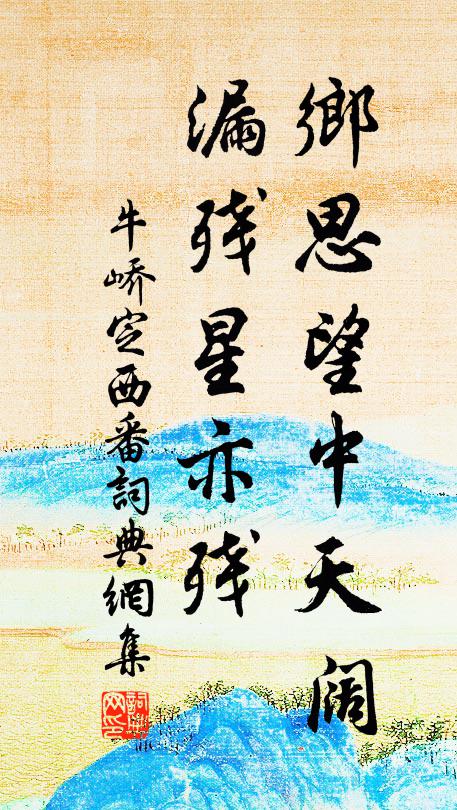 鄉思望中天阔
漏残星亦残
牛嶠定西番詞典網集